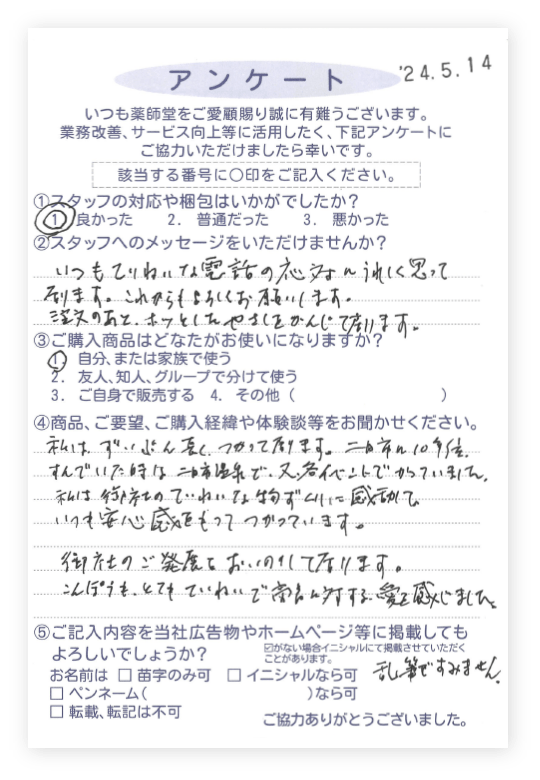 アンケート
'24.5.14
いつも薬師堂をご愛顧賜り誠に有難うございます。
業務改善、サービス向上等に活用したく、下記アンケートに
ご協力いただけましたら幸いです。
該当する番号に〇印をご記入ください。
①スタッフの対応や梱包はいかがでしたか?
1. 良かった 2. 普通だった 3. 悪かった
②スタッフへのメッセージをいただけませんか?
いつもていねいな電話の応対にうれしく思って
居ります。これからもよろしくお願いします。
注文のあと、ホッとしたやさしさをかんじて居ります。
③ご購入商品はどなたがお使いになりますか?
1. 自分、または家族で使う
2. 友人、知人、グループで分けて使う
3. ご自身で販売する 4. その他( )
④商品、ご要望、ご購入経緯や体験談等をお聞かせください。
私は、ずいぶん長く、つかって居ります。二日市に10年位、
すんでいた時は二日市温泉で、又、各イベントでかっていました。
私は御社のていねいな物づくりに感動して
いつも安心感をもってつかっています。
御社のご発展をおいのりして居ります。
こんぽうも、とてもていねいで商品に対する、愛を感じました。
⑤ご記入内容を当社広告物やホームページ等に掲載しても
よろしいでしょうか?
☑がない場合イニシャルにて掲載させていただく
ことがあります。
お名前は □ 苗字のみ可 □ イニシャルなら可
□ ペンネーム( )なら可
□ 転載、転記は不可
乱筆ですみません。
ご協力ありがとうございました。